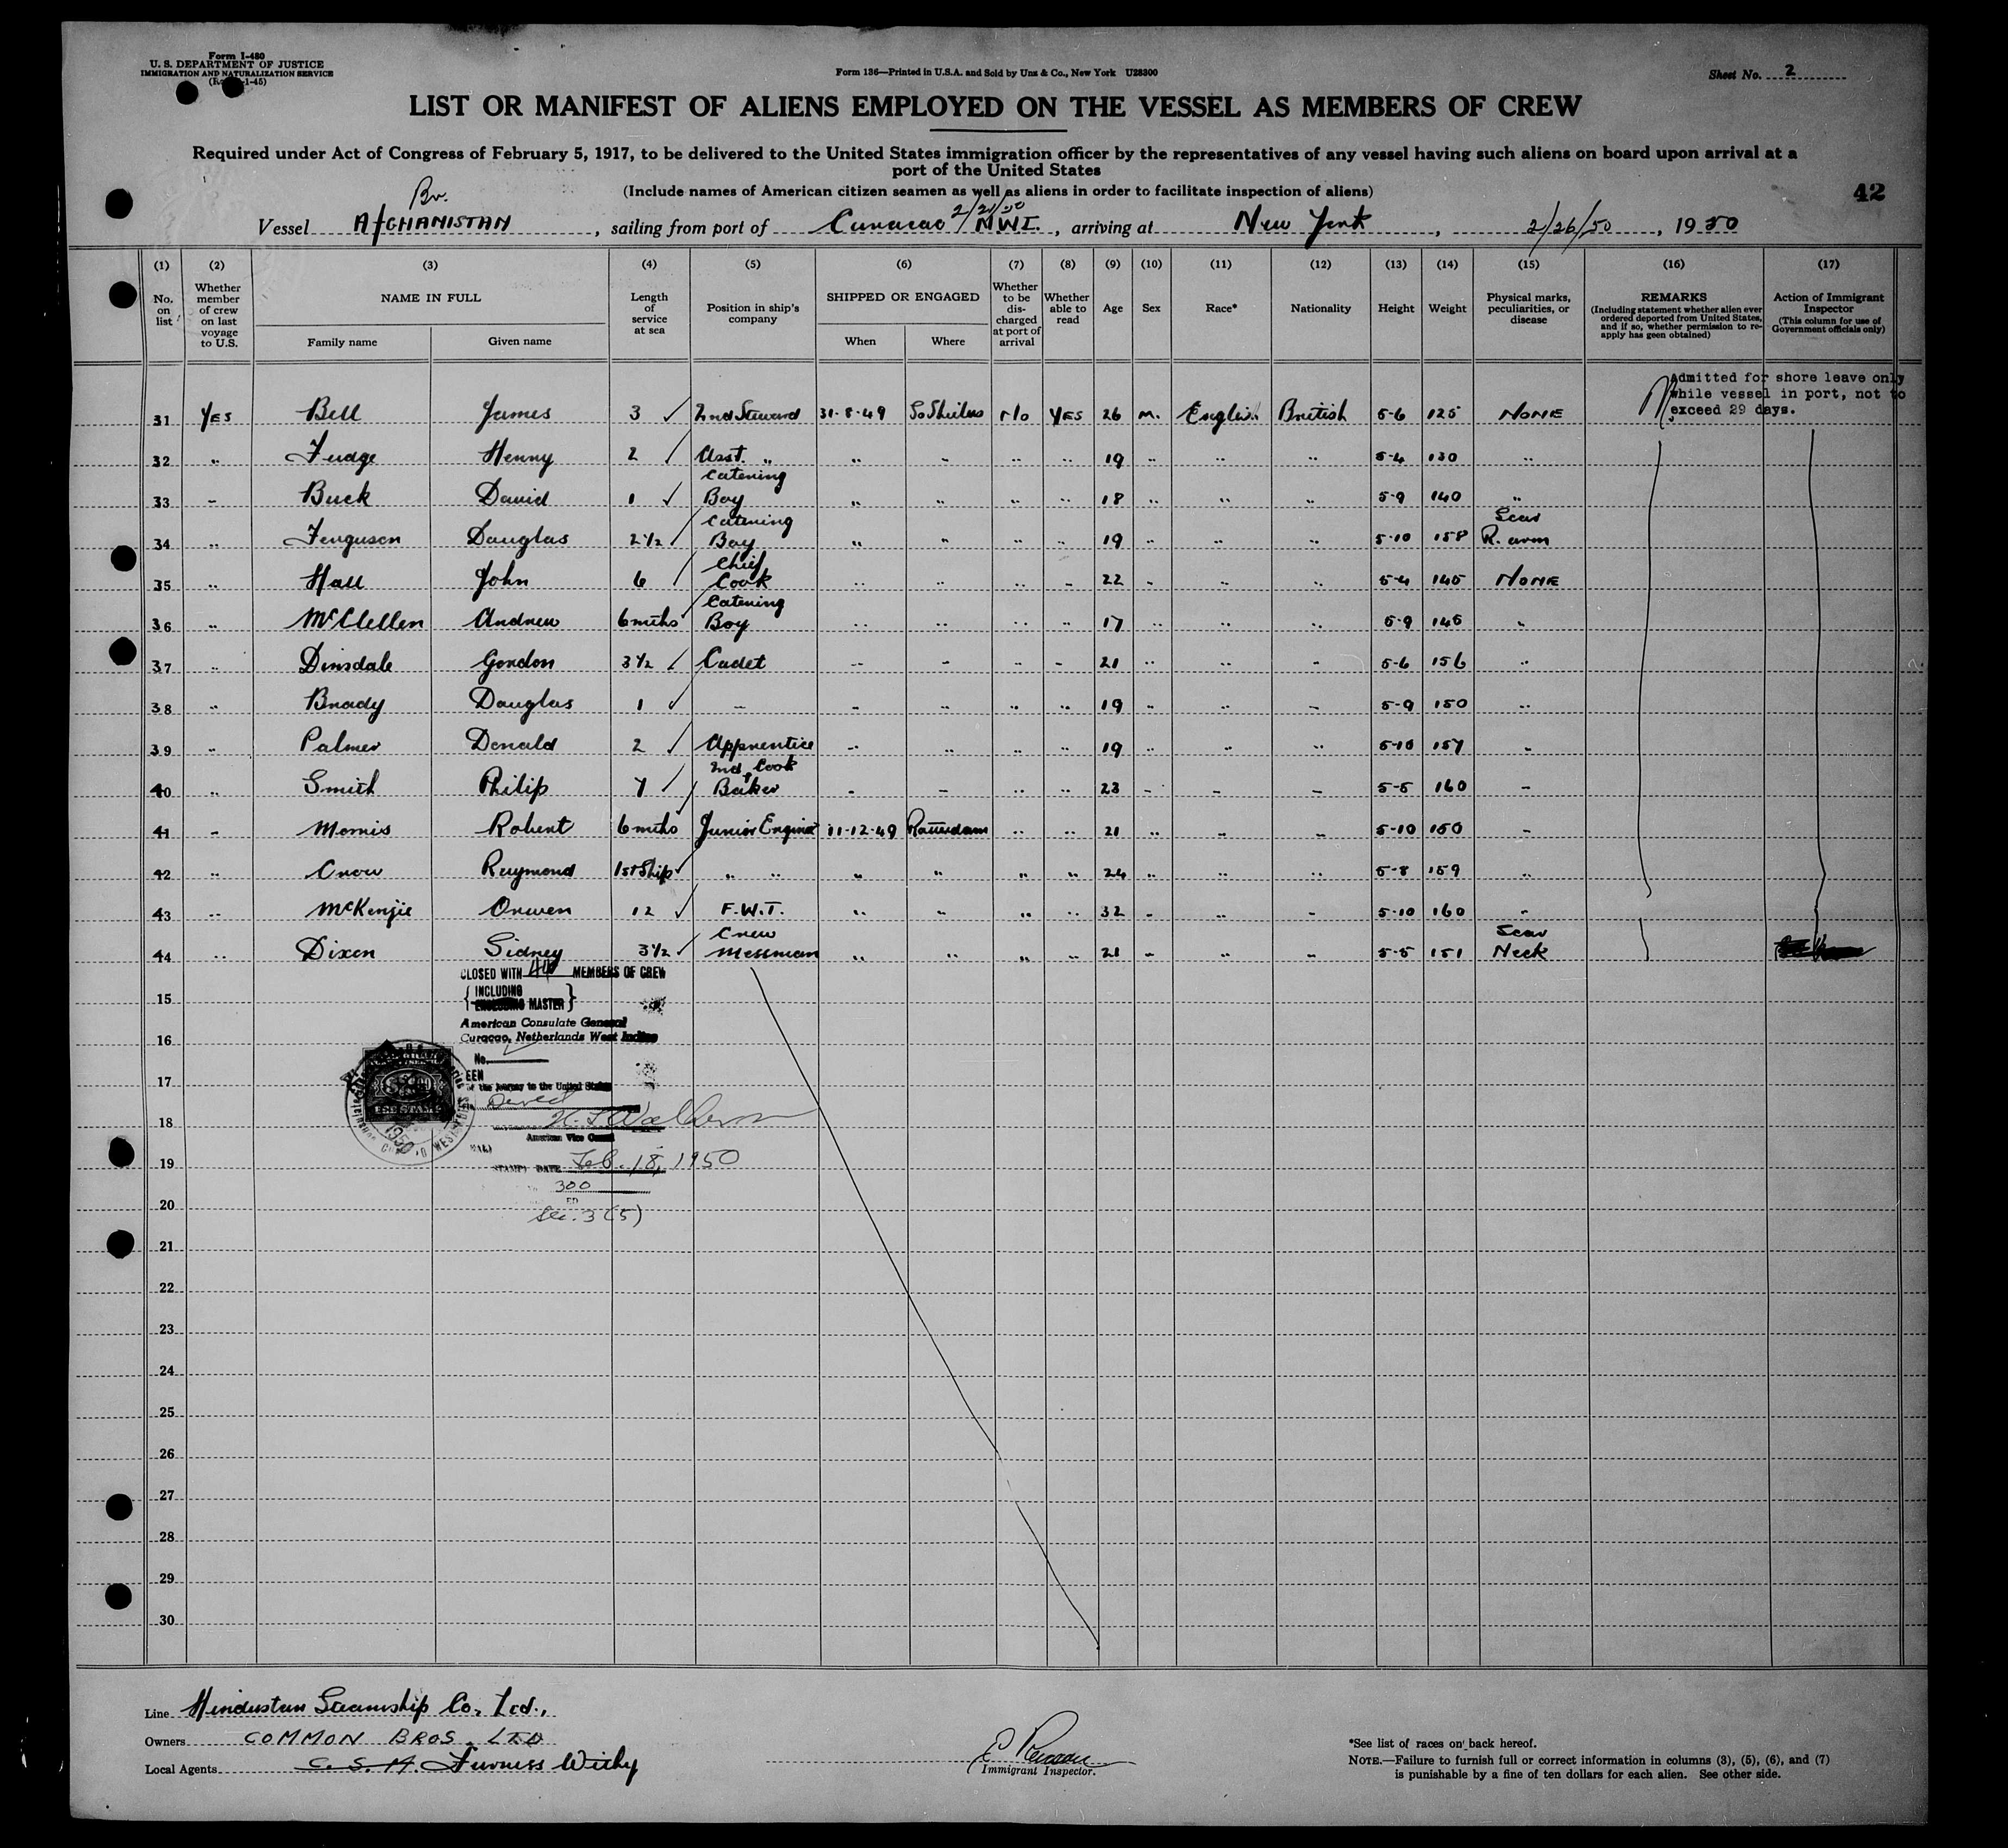 Form I-480
U. S. DEPARTMENT OF JUSTICE
IMMIGRATION AND NATURALIZATION SERVICE
Form 136—Printed in U.S.A. and Sold by Unz & Co., New York U28300
Sheet No. 2
LIST OR MANIFEST OF ALIENS EMPLOYED ON THE VESSEL AS MEMBERS OF CREW
Required under Act of Congress of February 5, 1917, to be delivered to the United States immigration officer by the representatives of any vessel having such aliens on board upon arrival at a
port of the United States
(Include names of American citizen seamen as well as aliens in order to facilitate inspection of aliens)
42
Vessel Br. AFGHANISTAN, sailing from port of Curacao 2/21/50 NWI., arriving at New York, 2/26/50, 1950
(1) (2) (3) (4) (5) (6) (7) (8) (9) (10) (11) (12) (13) (14) (15) (16) (17)
No. on list
Whether member of crew on last voyage to U.S.
NAME IN FULL
Family name
Given name
Length of service at sea
Position in ship's company
SHIPPED OR ENGAGED
When
Where
Whether to be discharged at port of arrival
Whether able to read
Age
Sex
Race*
Nationality
Height
Weight
Physical marks, peculiarities, or disease
REMARKS
(Including statement whether alien ever ordered deported from United States, and if so, whether permission to reapply has geen obtained)
Action of Immigrant Inspector
(This column for use of Government officials only)
Admitted for shore leave only
while vessel in port, not to
exceed 29 days.
31 YES Bell James 3 ✓ 2nd Steward 31-8-49 So Shields No YES 26 M. English British 5-6 125 NONE
32 " Fudge Henry 2 ✓ Asst. " " " " " 19 " " " 5-4 130 "
33 " Buck David 1 ✓ Catering Boy " " " " 18 " " " 5-9 140 "
34 " Ferguson Douglas 2½ ✓ Catering Boy " " " " 19 " " " 5-10 158 Scar R. arm
35 " Hall John 6 ✓ Chief Cook " " " " 22 " " " 5-4 145 NONE
36 " McClellen Andrew 6 mths ✓ Catering Boy " " " " 17 " " " 5-9 145 "
37 " Dinsdale Gordon 3½ ✓ Cadet " " " " 21 " " " 5-6 156 "
38 " Brady Douglas 1 ✓ " " " " " 19 " " " 5-9 150 "
39 " Palmer Donald 2 ✓ Apprentice " " " " 19 " " " 5-10 157 "
40 " Smith Philip 7 ✓ 2nd Cook + Baker " " " " 23 " " " 5-5 160 "
41 " Morris Robert 6 mths ✓ Junior Engineer 11-12-49 Rotterdam " " 21 " " " 5-10 150 "
42 " Crow Raymond 1st Ship ✓ " " " " " " 24 " " " 5-8 159 "
43 " McKenzie Orwen 12 ✓ F.W.T. " " " " 32 " " " 5-10 160 "
44 " Dixon Sidney 3½ ✓ Crew Messman " " " " 21 " " " 5-5 151 Scar Neck
CLOSED WITH 44 MEMBERS OF CREW
INCLUDING
MASTER
American Consulate General
Curacao, Netherlands West Indies
No.
of the journey to the United States
American Vice Consul
DATE Feb. 18, 1950
300
Sec. 3(5)
FEE STAMP
1950
15
16
17
18
19
20
21
22
23
24
25
26
27
28
29
30
Line Hindustan Steamship Co. Ltd.,
Owners COMMON BROS. LTD
Local Agents C. S. H. Furness Withy
Immigrant Inspector.
*See list of races on back hereof.
NOTE.—Failure to furnish full or correct information in columns (3), (5), (6), and (7)
is punishable by a fine of ten dollars for each alien. See other side.